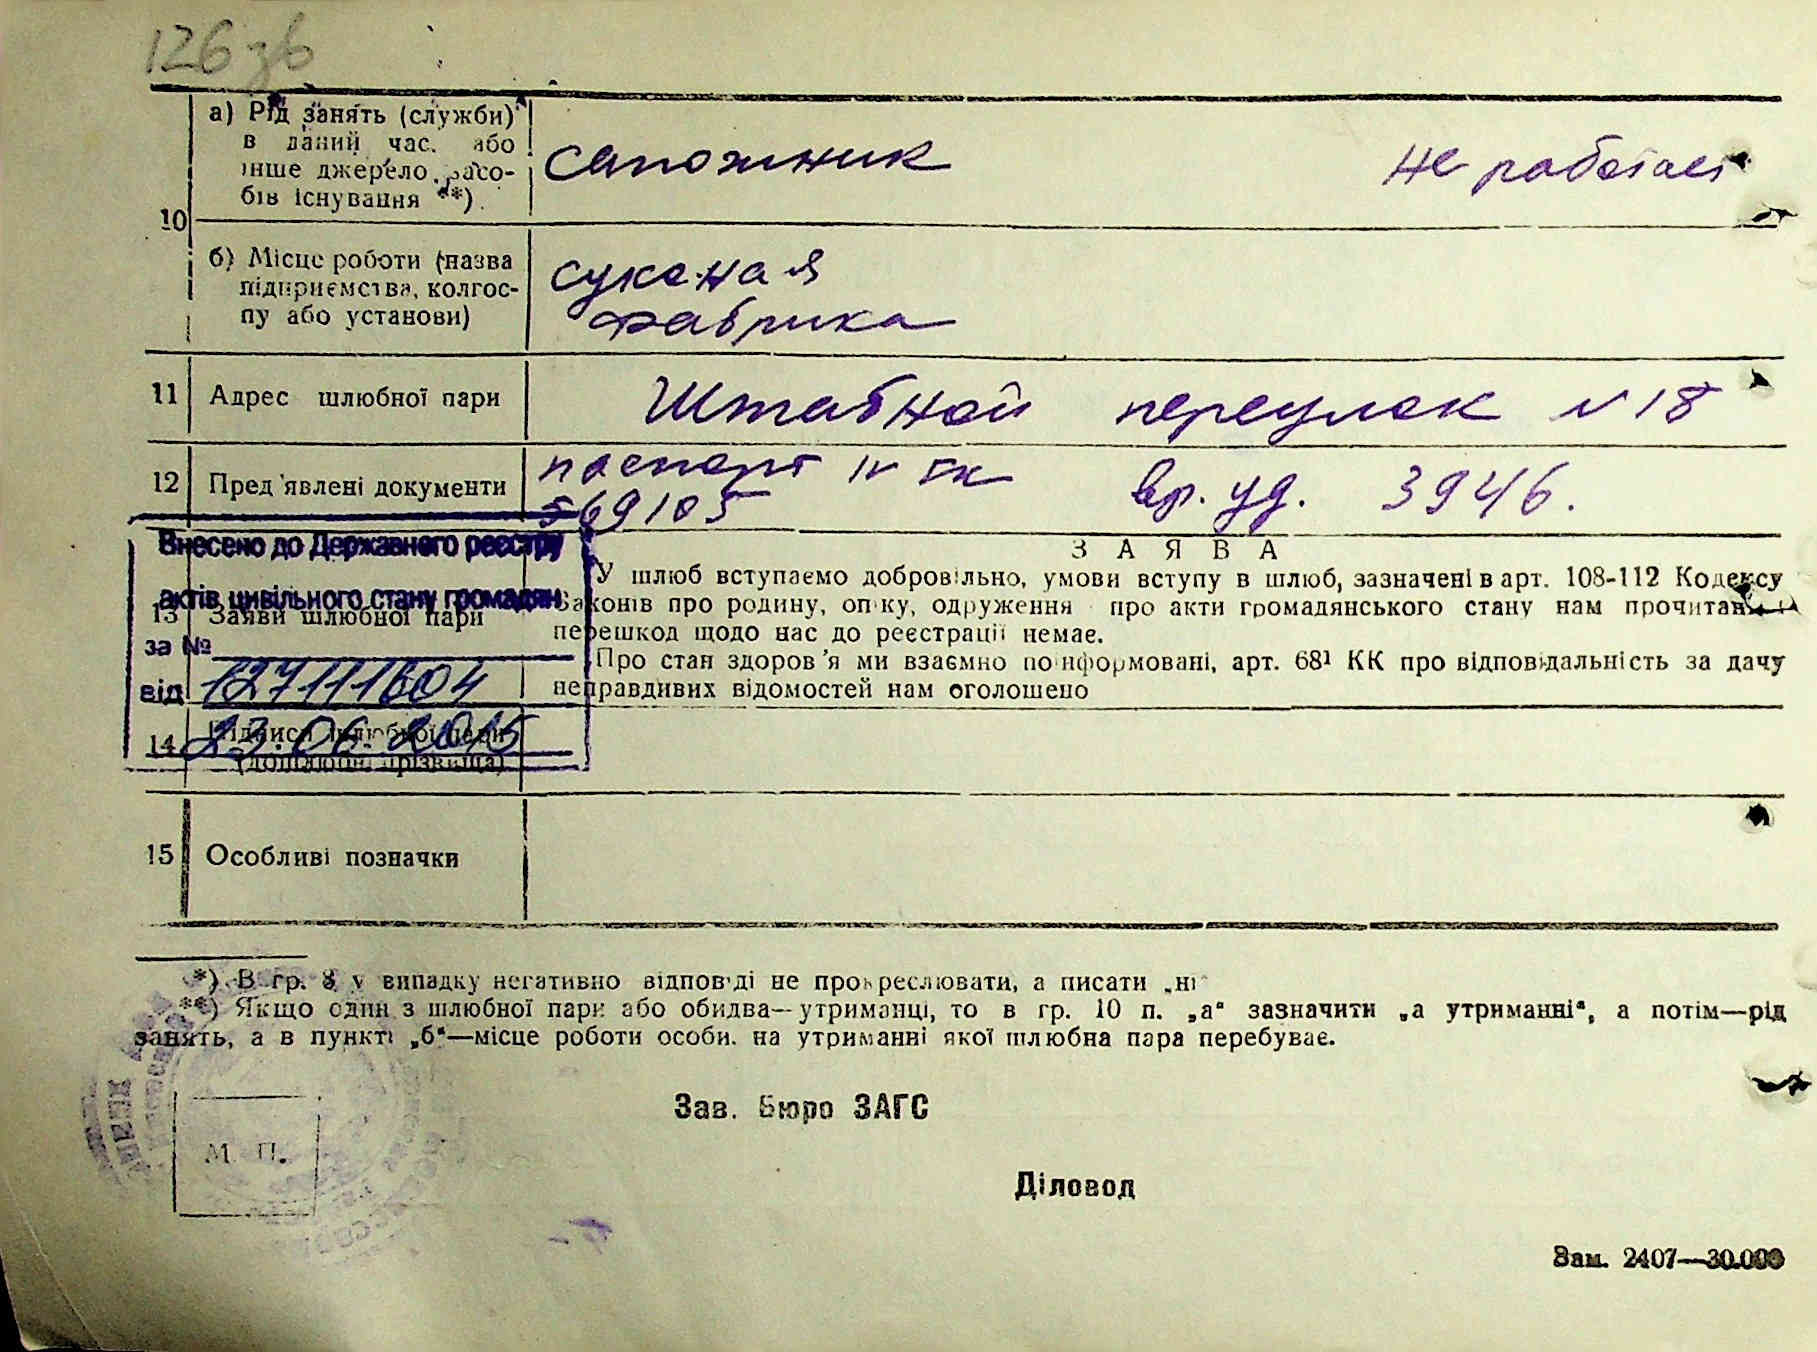 126 зв
10
а) Рід занять (служби)
в даний час. або
інше джерело засо-
бів існування **)
сапожник
не работает
б) Місце роботи (назва
підприємства, колгос-
пу або установи)
суконая
фабрика
11 Адрес шлюбної пари
Штабной переулок № 18
12 Пред'явлені документи
паспорт IV
569105
вр. уд. 3946.
Внесено до Державного реєстру
актів цивільного стану громадян
за №
127111604
від
23.06.2015
13 Заяви шлюбної пари
ЗАЯВА
У шлюб вступаємо добровільно, умови вступу в шлюб, зазначені в арт. 108-112 Кодексу
Законів про родину, опіку, одруження про акти громадянського стану нам прочитані
перешкод щодо нас до реєстрації немає.
Про стан здоров'я ми взаємно поінформовані, арт. 68¹ КК про відповідальність за дачу
неправдивих відомостей нам оголошено
14 Підписи шлюбної пари
(дошлюбні прізвища)
15 Особливі позначки
*) В гр. 8 у випадку негативно відповіді не прокреслювати, а писати „ні"
**) Якщо один з шлюбної пари або обидва—утриманці, то в гр. 10 п. „а" зазначити „а утриманні", а потім—рід
занять, а в пункті „б"—місце роботи особи. на утриманні якої шлюбна пара перебуває.
Зав. Бюро ЗАГС
М. П.
Діловод
Зам. 2407—30.000